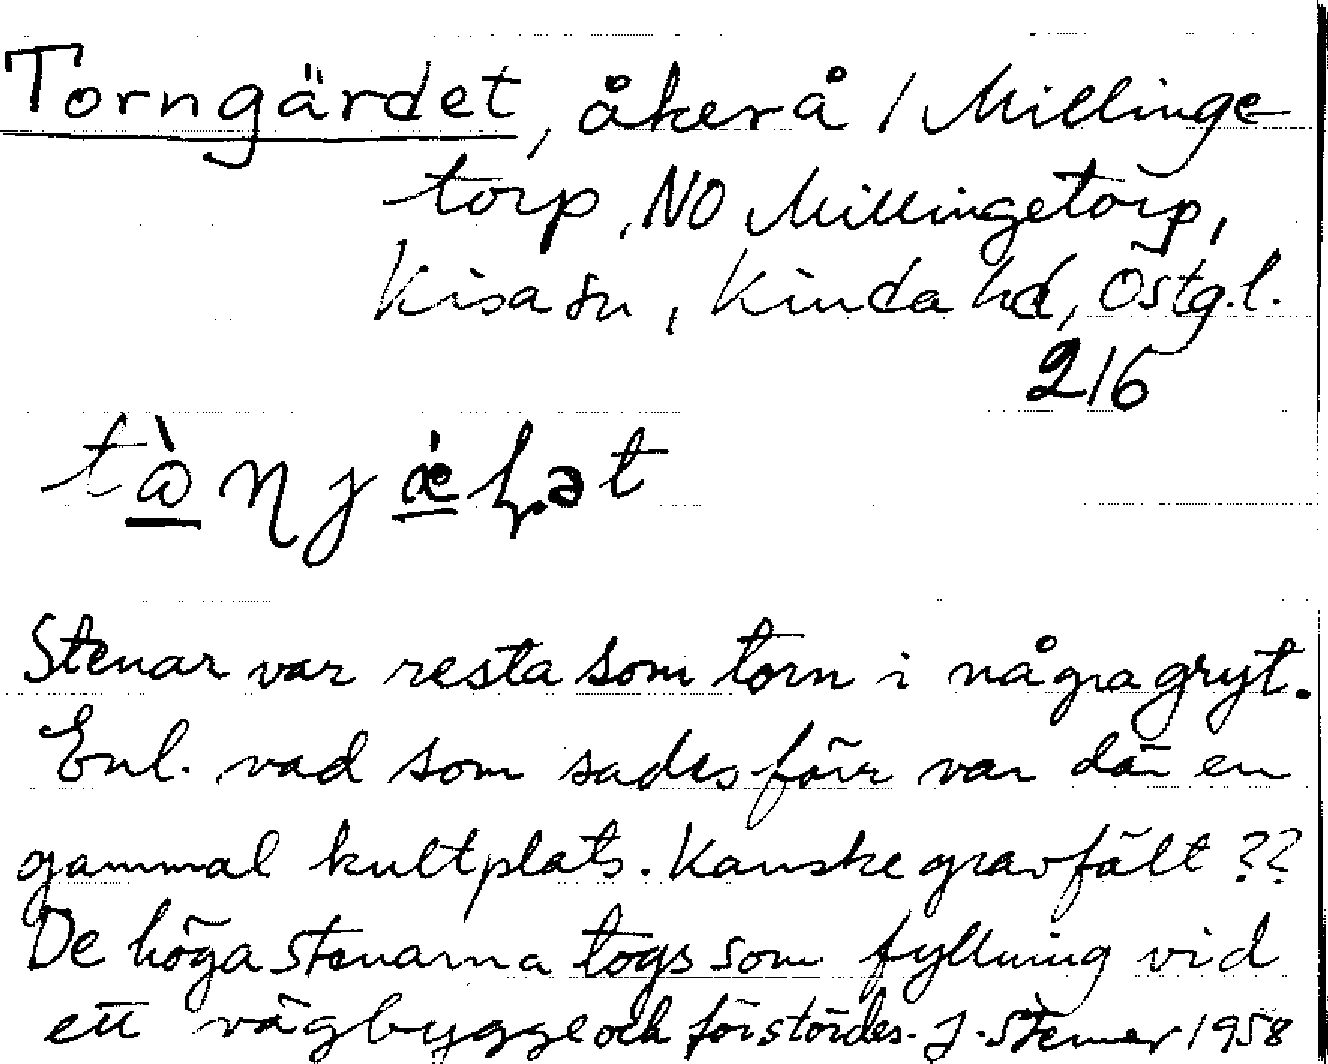 Torngärdet, åker å / Millinge
torp, NO Millingetorp,
Kisa sn, Kinda hd, Östg.l.
216
Stenar var resta som torn i några gryt.
Enl. vad som sades förr var där en
gammal kultplats. Kanske gravfält ??
De höga stenarna togs som fyllning vid
ett vägbygge och förstördes. J. Stenner 1958